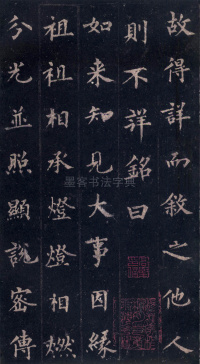 故得詳而敘之他人
則不詳銘曰
如来知見大事因緣
祖祖相承燈燈相燃
分光並照顯說密傳
墨客书法字典